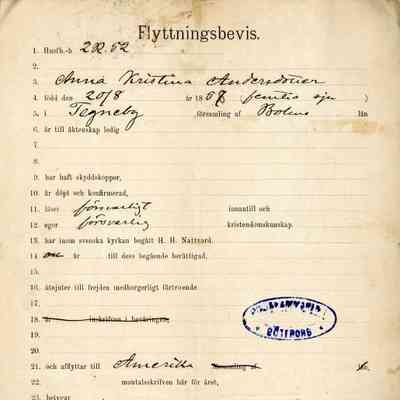 Flyttningsbevis.
1. Husfh.-b
2.
3. Anna Kristina Andersdotter
4. född den 20/8 år 1857 femtio sju )
5. i Tegneby församling af Bohus län
6. är till äktenskap ledig
7.
8.
9. har haft skyddskoppor,
10. är döpt och konfirmerad,
11. läser försvarligt innantill och
12. eger försvarlig kristendomskunskap.
13. har inom svenska kyrkan begått H. H. Nattvard.
14. är till dess begående berättigad,
15.
16. åtnjuter till frejden medborgerligt förtroende
17.
18. är inskrifven i beväringen,
19.
20.
21. och afflyttar till Amerika församling af län,
22. mantalsskrifven här för året,
23. beivrar
GÖTEBORG